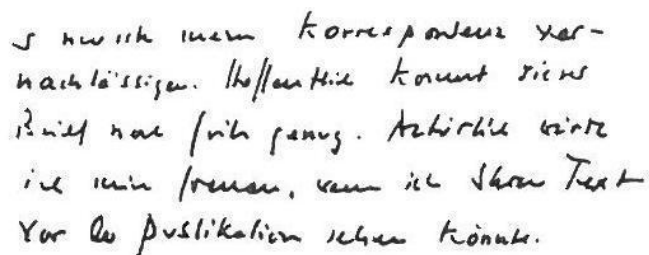 meine Korrespondenz ver-
nachlässigen. Hoffentlich kommt dieser
Brief noch früh genug. Natürlich würde
ich mich freuen, wenn ich Ihren Text
vor der Publikation sehen könnte.